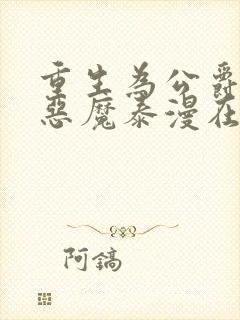 重生為公爵
惡魔泰漫在
阿鎬